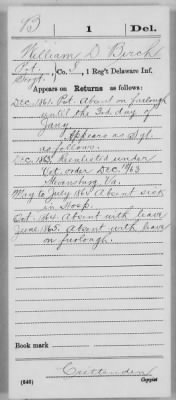 B | 1 | Del.
William D. Birch
Pvt.
Sergt., Co. , 1 Reg't Delaware Inf.
Appears on Returns as follows:
Dec. 1861. Pvt. Absent on furlough
until the 3rd day of
Jany.
Appears as Sgt.
as follows.
Dec. 1863. Reenlisted under
Vet. order Dec. 19/63
Stevensburg Va.
May to July 1864 Absent sick
in Hosp.
Oct. 1864. Absent with leave
June 1865. Absent with leave
on furlough.
Book mark
Crittenden
(546) Copyist.